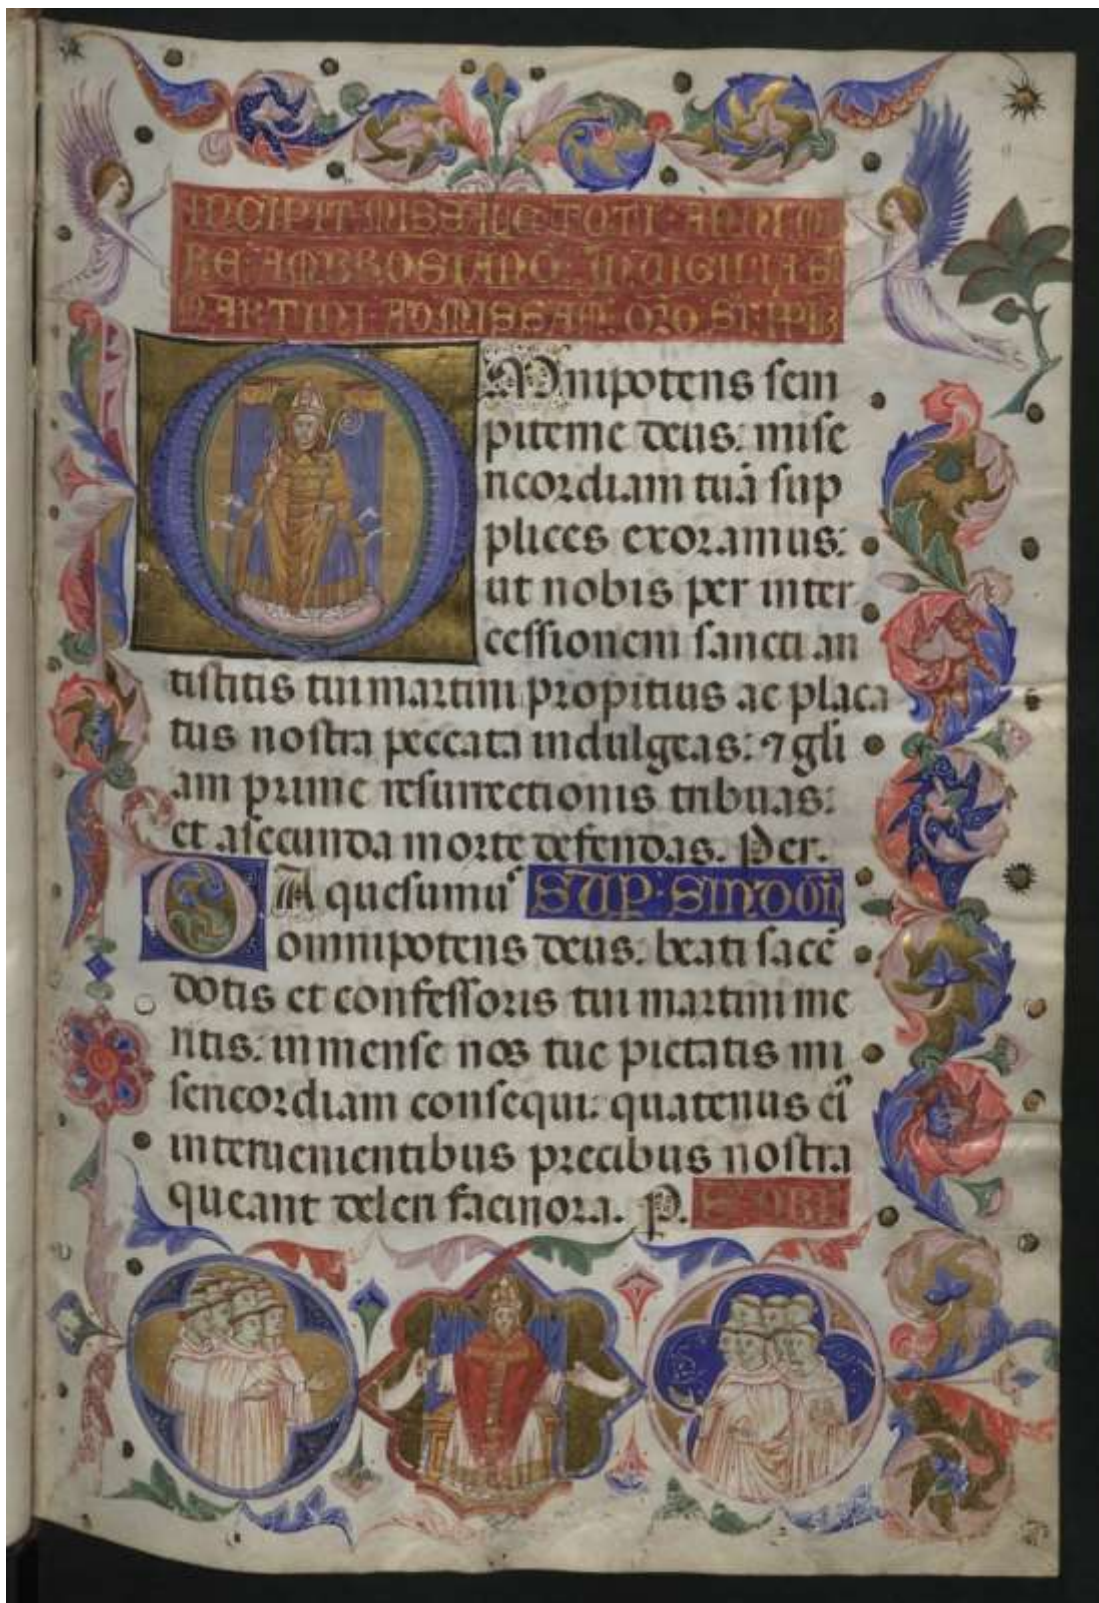 INCIPIT MISSALE TOTI ANNI MO
RE AMBROSIANO IN VIGILIA S
MARTINI AD MISSAM ORO SUP PPLM
OMnipotens sem
piterne deus: mise
ricordiam tuā sup
plices exoramus:
ut nobis per inter
cessionem sancti an
tistitis tui martini propitius ac placa
tus nostra peccata indulgeas: ⁊ gli
am prime resurrectionis tribuas:
et asecunda morte defendas. Per.
DA quesumus SUP SINDOÑ
omnipotens deus: beati sacer
dotis et confessoris tui martini me
ritis: inmense nos tue pietatis mi
sericordiam consequi: quatenus eī
intervenientibus precibus nostra
queant deleri facinora. P.